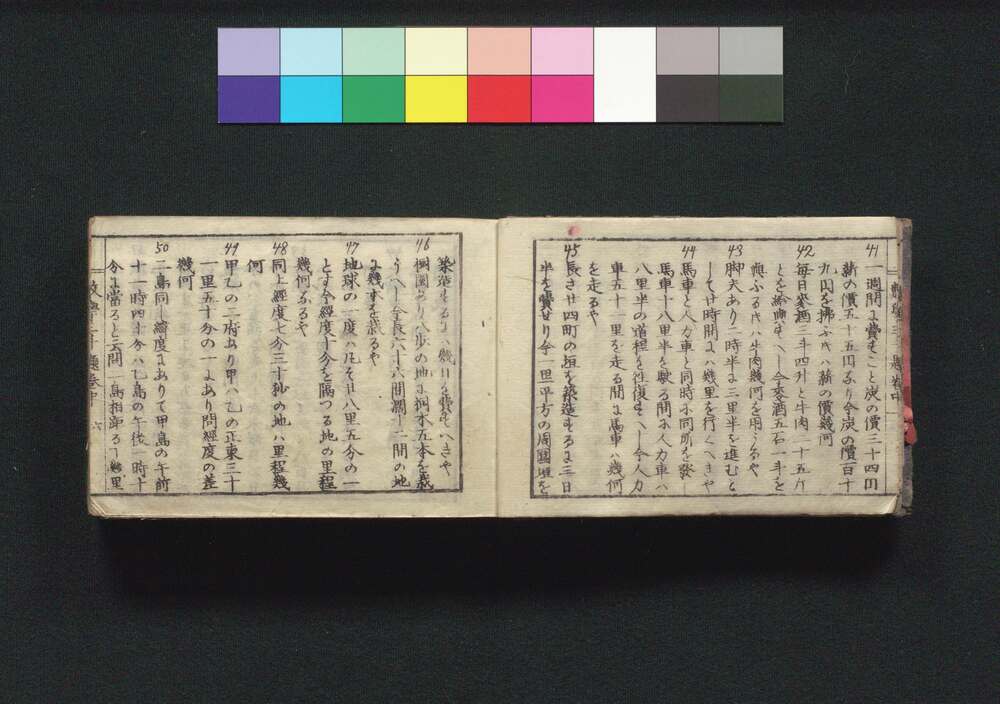 41
一週間に費すこと炭の價三十四円
薪の價五十五円なり今炭の價百十
九円を拂ふときハ薪の價幾何
42
毎日麥酒三斗四升と牛肉二十五斤
とを給與すへし今麥酒五石一斗を
與ふるときハ牛肉幾何を用うるや
43
脚夫あり二時半に三里半を進むと
して廿時間にハ幾里を行くへきや
44
馬車と人力車と同時に同所を發し
馬車十八里半を駛る間に人力車ハ
八里半の道程を往復すへし今人力
車五十一里を走る間に馬車ハ幾何
を走るや
45
長さ廿四町の垣を築造するに三日
半を費せり今一里平方の周囲に垣を
築造するにハ幾日を費すへきや
46
桐園あり八歩の地に桐木五本を栽
うへし今長六十六間濶十二間の地
に幾本を栽るや
47
地球の一度ハ凡そ廿八里五分の一
とす今經度十分を隔つる地の里程
幾何なるや
48
同上經度七分三十秒の地ハ里程幾
何
49
甲乙の二府あり甲ハ乙の正東三十
一里五十分の一にあり問經度の差
幾何
50
二島同し緯度にありて甲島の午前
十一時四十分ハ乙島の午後一時十
分に當ると云問二島相距る幾里
數學三千題卷中
六